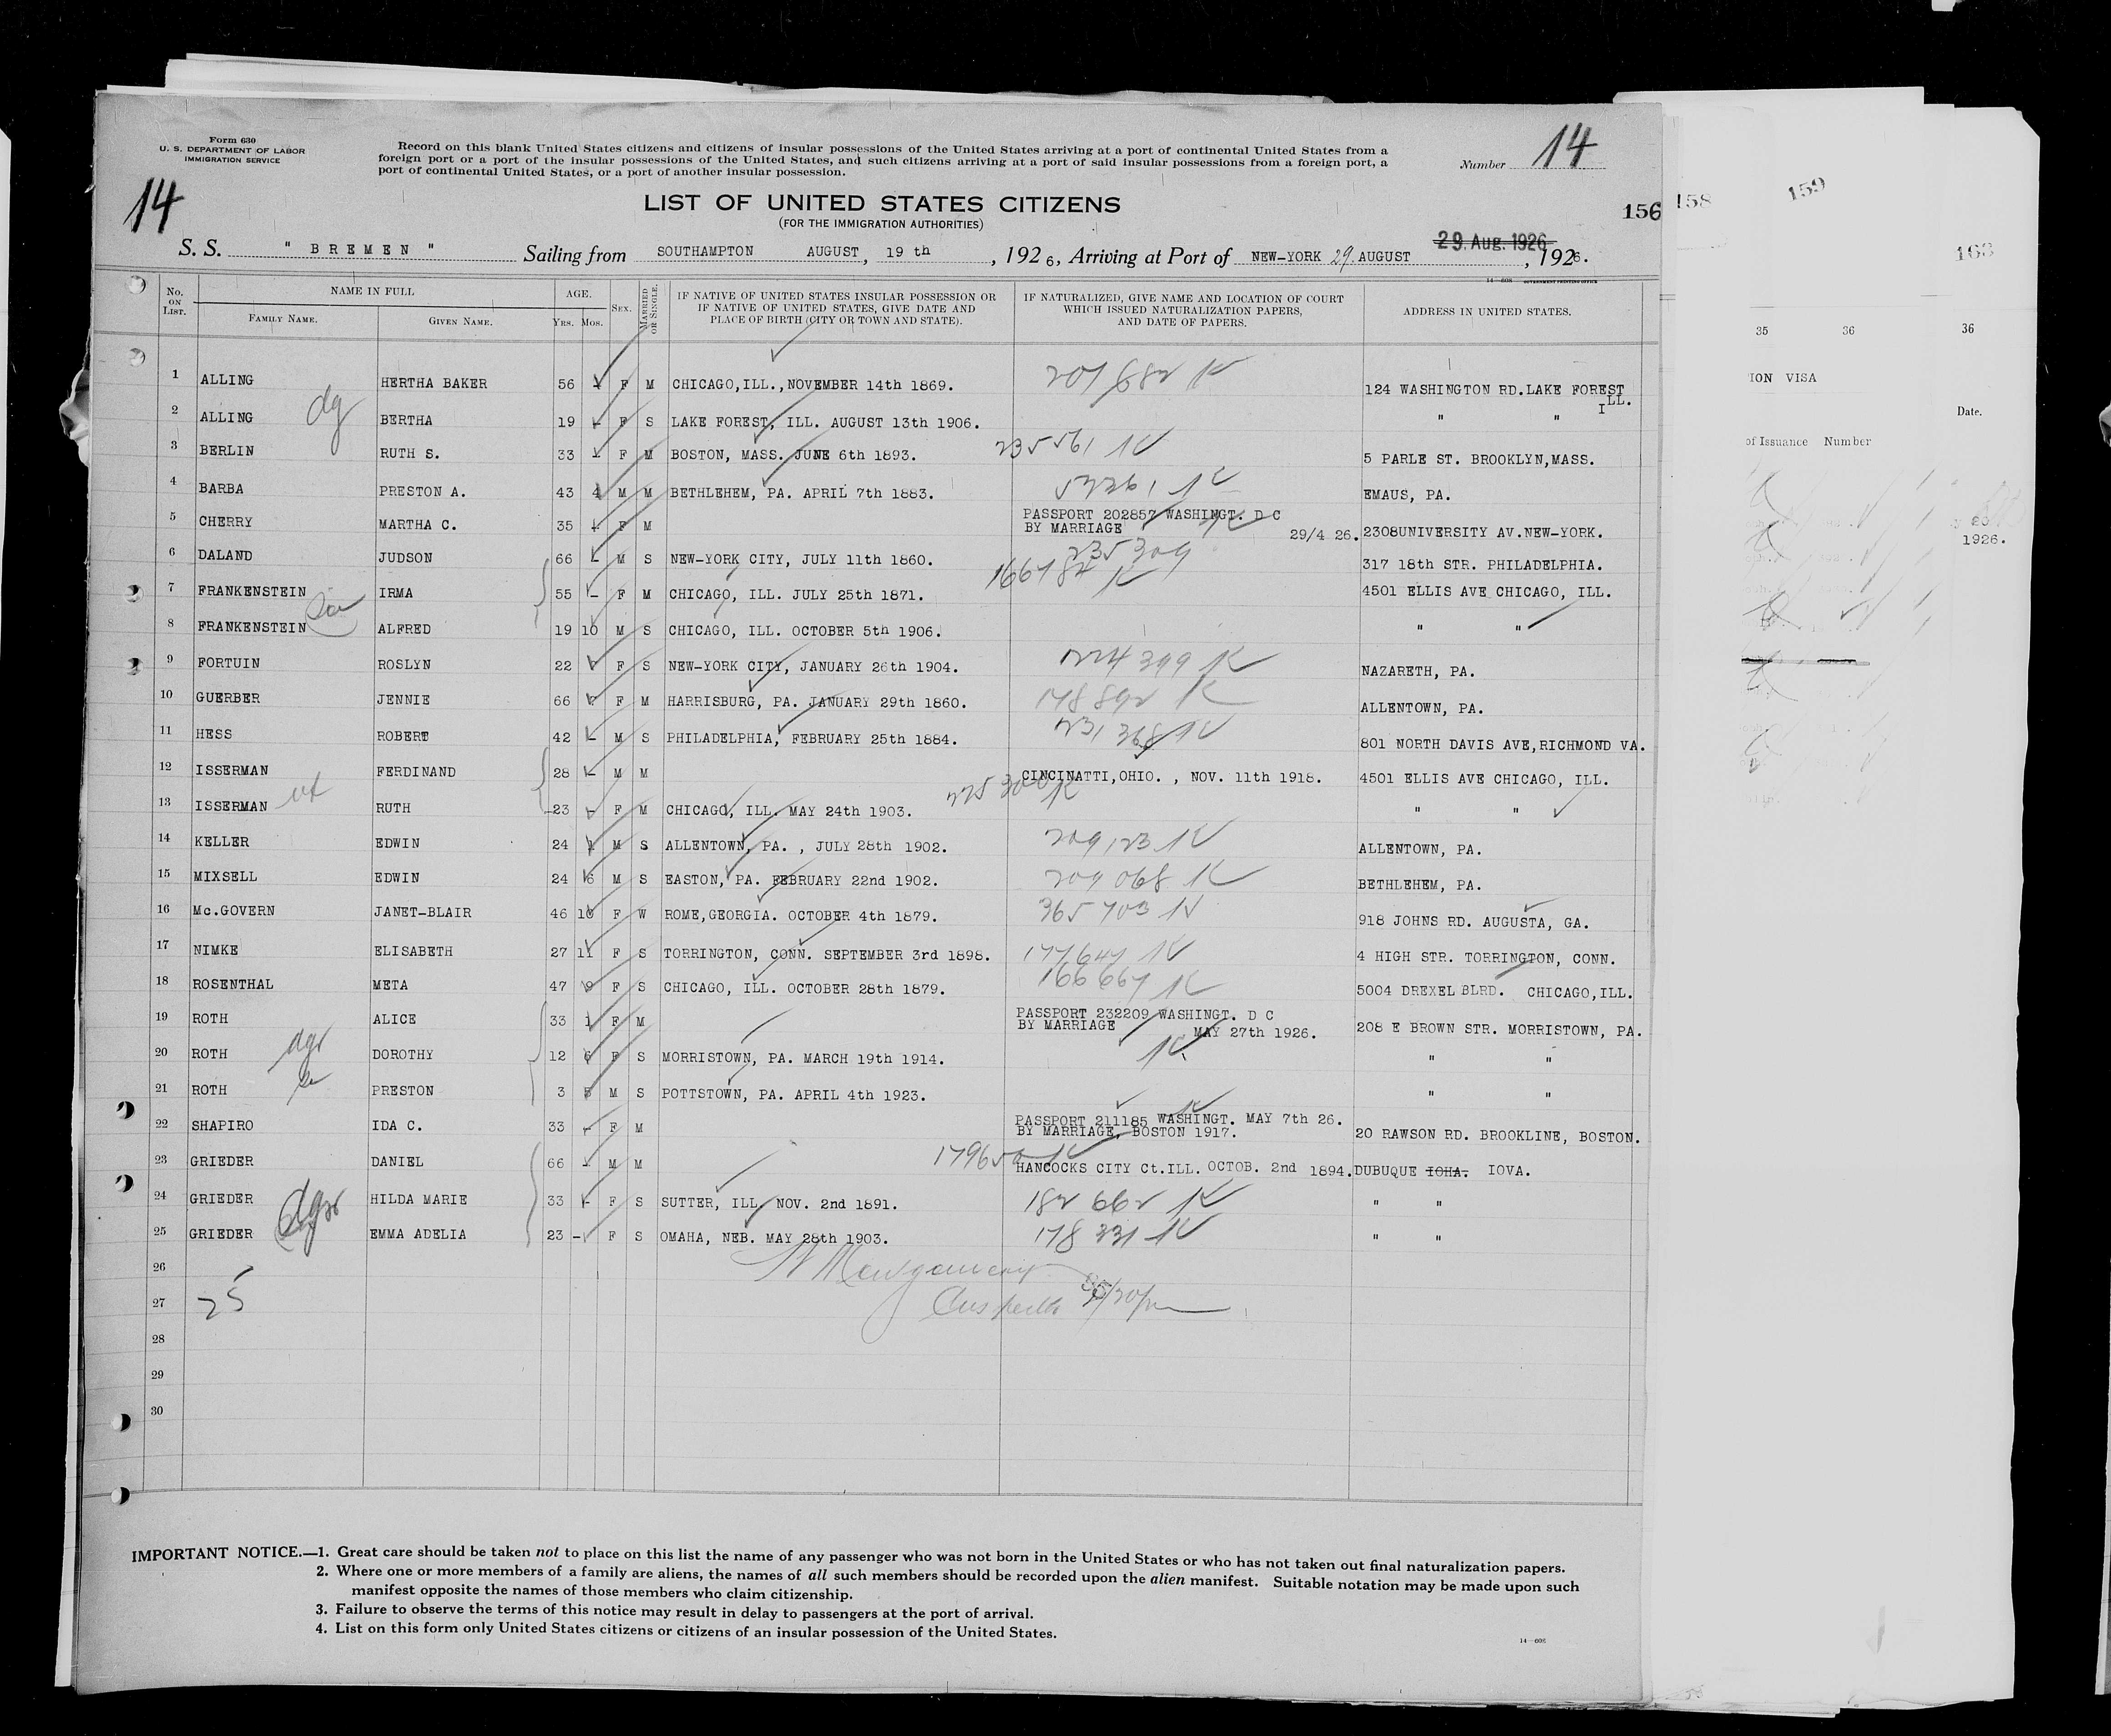 Form 630
U. S. DEPARTMENT OF LABOR
IMMIGRATION SERVICE
Record on this blank United States citizens and citizens of insular possessions of the United States arriving at a port of continental United States from a
foreign port or a port of the insular possessions of the United States, and such citizens arriving at a port of said insular possessions from a foreign port, a
port of continental United States, or a port of another insular possession.
Number 14
14
LIST OF UNITED STATES CITIZENS
(FOR THE IMMIGRATION AUTHORITIES)
156 158 159 163
29. Aug. 1926
S. S. " BREMEN " Sailing from SOUTHAMPTON AUGUST, 19 th, 192 6, Arriving at Port of NEW-YORK 29. AUGUST, 1926.
14—608 GOVERNMENT PRINTING OFFICE
No. ON LIST. NAME IN FULL FAMILY NAME. GIVEN NAME. AGE. YRS. MOS. SEX. MARRIED OR SINGLE. IF NATIVE OF UNITED STATES INSULAR POSSESSION OR IF NATIVE OF UNITED STATES, GIVE DATE AND PLACE OF BIRTH (CITY OR TOWN AND STATE). IF NATURALIZED, GIVE NAME AND LOCATION OF COURT WHICH ISSUED NATURALIZATION PAPERS, AND DATE OF PAPERS. ADDRESS IN UNITED STATES.
1 ALLING HERTHA BAKER 56 - F M CHICAGO,ILL.,NOVEMBER 14th 1869. 124 WASHINGTON RD.LAKE FOREST ILL.
2 ALLING dg BERTHA 19 - F S LAKE FOREST, ILL. AUGUST 13th 1906. " "
3 BERLIN RUTH S. 33 - F M BOSTON, MASS. JUNE 6th 1893. 235561 5 PARLE ST. BROOKLYN,MASS.
4 BARBA PRESTON A. 43 4 M M BETHLEHEM, PA. APRIL 7th 1883. EMAUS, PA.
5 CHERRY MARTHA C. 35 - F M PASSPORT 202857 WASHINGT. D C BY MARRIAGE 29/4 26. 2308UNIVERSITY AV.NEW-YORK.
6 DALAND JUDSON 66 - M S NEW-YORK CITY, JULY 11th 1860. 235309 317 18th STR. PHILADELPHIA.
7 FRANKENSTEIN IRMA 55 - F M CHICAGO, ILL. JULY 25th 1871. 4501 ELLIS AVE CHICAGO, ILL.
8 FRANKENSTEIN son ALFRED 19 10 M S CHICAGO, ILL. OCTOBER 5th 1906. " "
9 FORTUIN ROSLYN 22 F S NEW-YORK CITY, JANUARY 26th 1904. 224399 NAZARETH, PA.
10 GUERBER JENNIE 66 F M HARRISBURG, PA. JANUARY 29th 1860. 178892 ALLENTOWN, PA.
11 HESS ROBERT 42 - M S PHILADELPHIA, FEBRUARY 25th 1884. 231368 801 NORTH DAVIS AVE,RICHMOND VA.
12 ISSERMAN FERDINAND 28 - M M CINCINATTI,OHIO. , NOV. 11th 1918. 4501 ELLIS AVE CHICAGO, ILL.
13 ISSERMAN RUTH 23 - F M CHICAGO, ILL. MAY 24th 1903. " "
14 KELLER EDWIN 24 1 M S ALLENTOWN, PA. , JULY 28th 1902. 209123 ALLENTOWN, PA.
15 MIXSELL EDWIN 24 6 M S EASTON, PA. FEBRUARY 22nd 1902. 209068 BETHLEHEM, PA.
16 Mc.GOVERN JANET-BLAIR 46 10 F W ROME,GEORGIA. OCTOBER 4th 1879. 365703 918 JOHNS RD. AUGUSTA, GA.
17 NIMKE ELISABETH 27 11 F S TORRINGTON, CONN. SEPTEMBER 3rd 1898. 177647 4 HIGH STR. TORRINGTON, CONN.
18 ROSENTHAL META 47 9 F S CHICAGO, ILL. OCTOBER 28th 1879. 166667 5004 DREXEL BLRD. CHICAGO,ILL.
19 ROTH ALICE 33 1 F M PASSPORT 232209 WASHINGT. D C BY MARRIAGE MAY 27th 1926. 208 E BROWN STR. MORRISTOWN, PA.
20 ROTH dgr DOROTHY 12 6 F S MORRISTOWN, PA. MARCH 19th 1914. " "
21 ROTH PRESTON 3 5 M S POTTSTOWN, PA. APRIL 4th 1923. " "
22 SHAPIRO IDA C. 33 - F M PASSPORT 211185 WASHINGT. MAY 7th 26. BY MARRIAGE, BOSTON 1917. 20 RAWSON RD. BROOKLINE, BOSTON.
23 GRIEDER DANIEL 66 - M M HANCOCKS CITY Ct.ILL. OCTOB. 2nd 1894. DUBUQUE IOHA. IOVA.
24 GRIEDER HILDA MARIE 33 - F S SUTTER, ILL. NOV. 2nd 1891. 182662 " "
25 GRIEDER dgr EMMA ADELIA 23 - F S OMAHA, NEB. MAY 28th 1903. 178331 " "
26
27 25
28
29
30
IMPORTANT NOTICE.—1. Great care should be taken not to place on this list the name of any passenger who was not born in the United States or who has not taken out final naturalization papers.
2. Where one or more members of a family are aliens, the names of all such members should be recorded upon the alien manifest. Suitable notation may be made upon such
manifest opposite the names of those members who claim citizenship.
3. Failure to observe the terms of this notice may result in delay to passengers at the port of arrival.
4. List on this form only United States citizens or citizens of an insular possession of the United States.
14—608
35 36 36
ION VISA
Date.
of Issuance Number
1926.